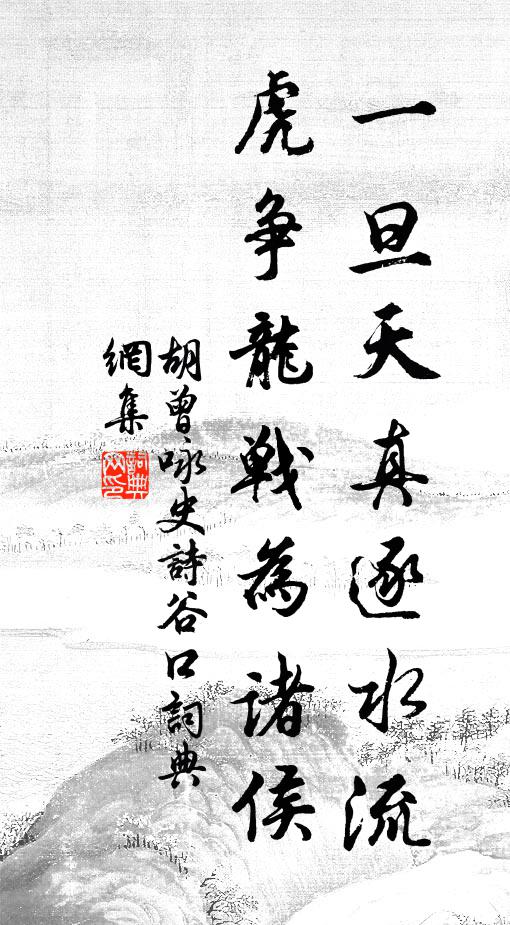 一旦天真逐水流
虎争龍戰為諸侯
胡曾咏史詩谷口詞典
網集